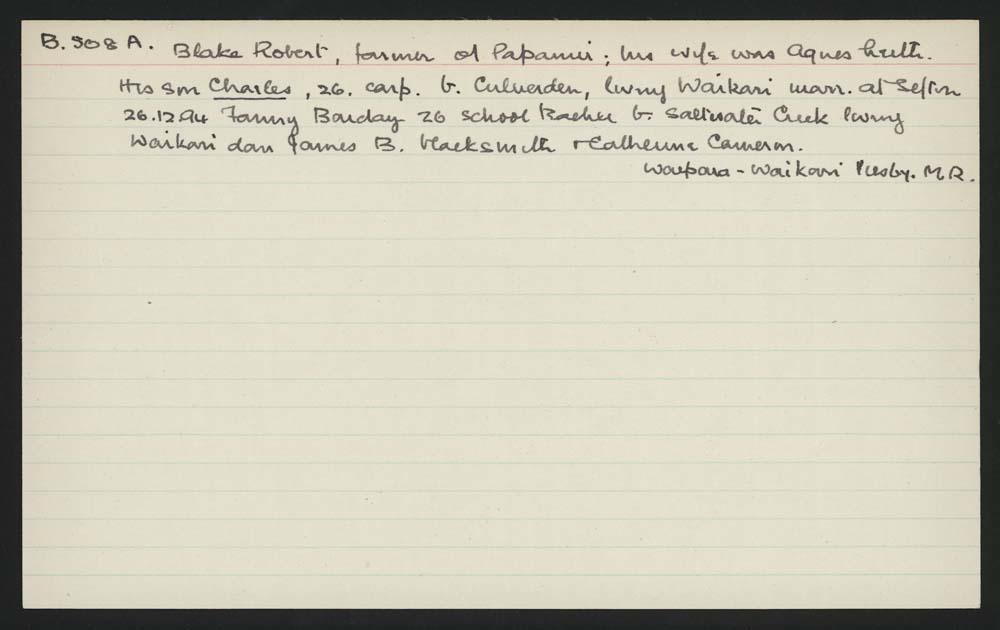 B.508 A. Blake Robert, farmer of Papanui; his wife was Agnes
His son Charles, 26. carp. b. Culverden, living Waikari marr. at Sefton
26.12.94 Fanny Barclay 26 school teacher b. Saltwater Creek living
Waikari dau James B. blacksmith + Catherine Cameron.
Waipara - Waikari Presby. M.R.